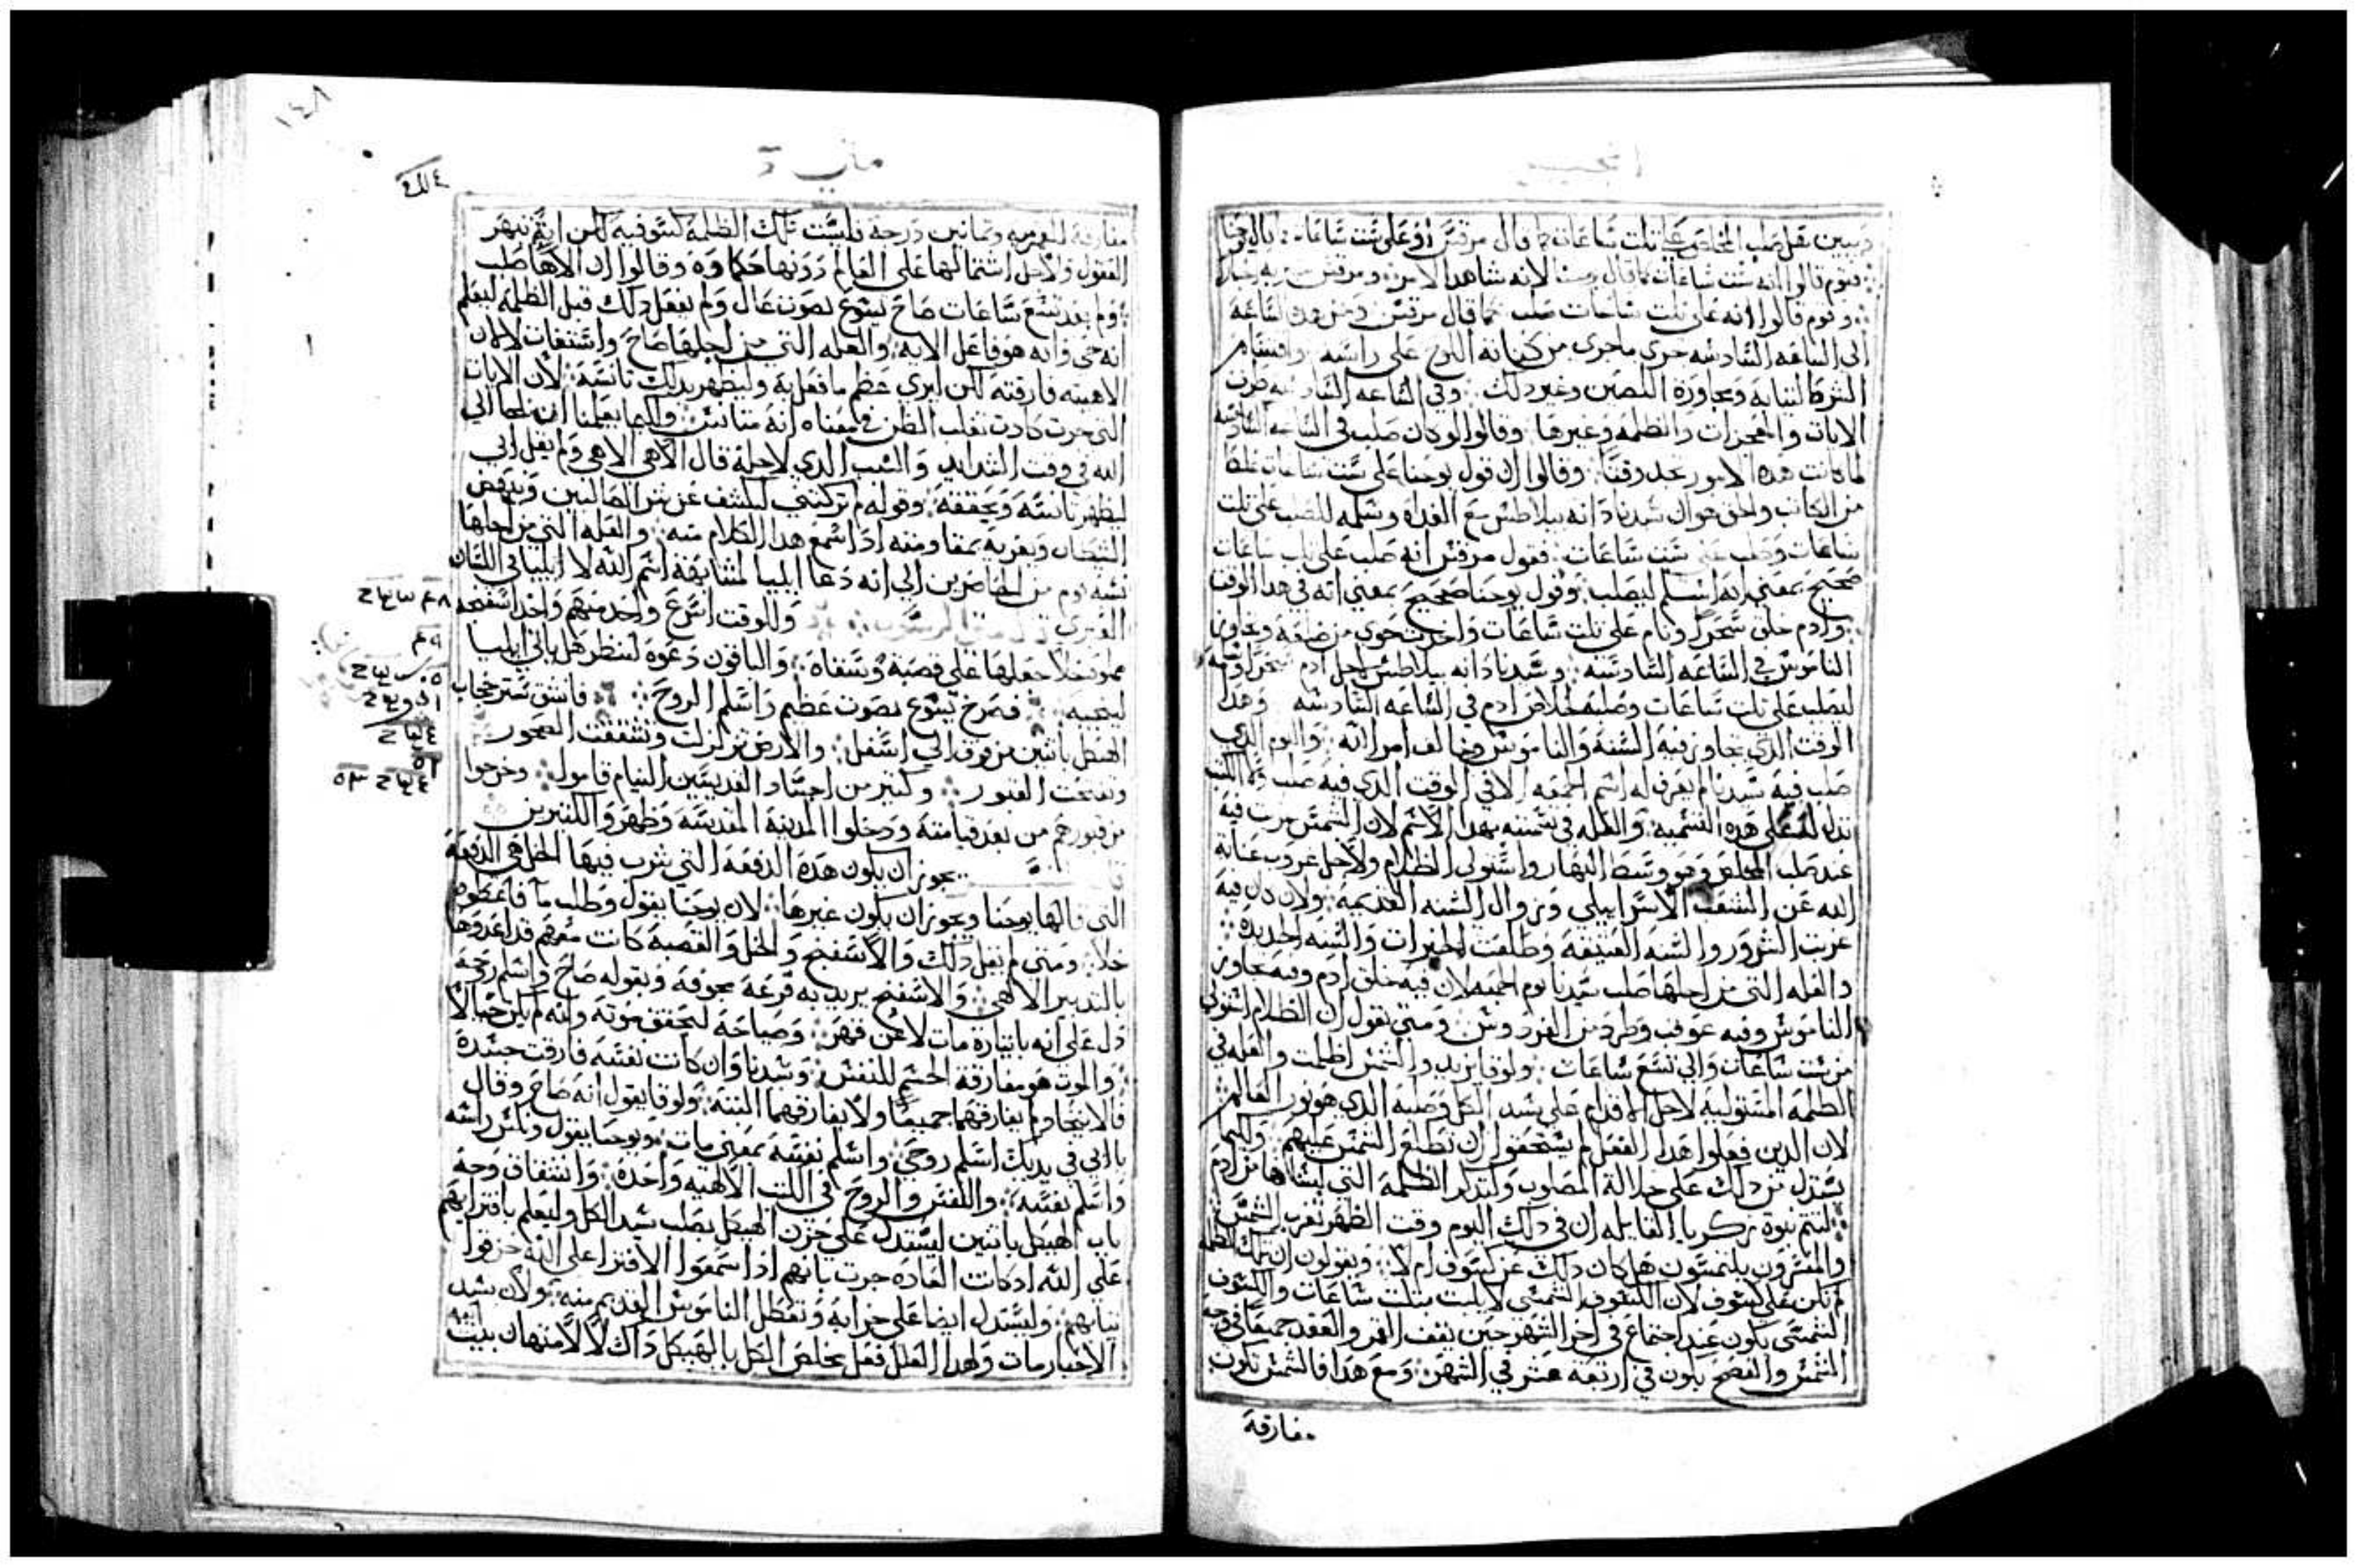 انجيل
وبين نقل صلب المخلص على ثلث ساعات كما قال مرقس او على ست ساعات كما قال يوحنا
فقوم قالوا انه ست ساعات كما قال يوحنا لانه شاهد الامر ومرقس
وقوم قالوا انه على ثلث ساعات صلب كما قال مرقس ومن هذه الساعه
الى الساعه السادسه جرى ماجرى من كتابة اللوح على راسه واقتسام
الشرط لثيابه ومجاورة اللصين وغير ذلك وفي الساعه السادسه ظهرت
الايات والمعجزات والظلمه وغيرها وقالوا لو كان صلب في الساعه السادسه
لما كانت هذه الامور تجد وقتا وقالوا ان قول يوحنا على ست ساعات غلط
من الكاتب والحق هو ان سيدنا دانه بيلاطس مع الغداة وسلمه للصلب على ثلث
ساعات وصلب على ست ساعات فقول مرقس انه صلب على ثلث ساعات
صحيح بمعنى انه اسلم ليصلب وقول يوحنا صحيح بمعنى انه في هذا الوقت
وادم خلق سحرا ونام على ثلث ساعات واخذت حوى من ضلعه وتجاوز
الناموس في الساعه السادسه وسيدنا دانه بيلاطس لاجل ادم سحرا وسلمه
ليصلب على ثلث ساعات وصلبه لخلاص ادم في الساعه السادسه وهذا
الوقت الذي تجاوز فيه السنه والناموس وخالف امر الله واليوم الذي
صلب فيه سيدنا لم يعرف له اسم الجمعه الا في الوقت الذي فيه صلب
تدل له على هذه التسميه والعله في تسميته بهذا الاسم لان الشمس غربت فيه
عند صلب المخلص وهو وسط النهار واستولى الظلام ولاجل غروب عناية
الله عن الشعب الاسراييلي وزوال السنه القديمه ولان دل فيه
غربت الشرور والسنه العتيقه وطلعت الخيرات والسنه الجديده
والعله التي من اجلها صلب سيدنا يوم الجمعه لان فيه خلق ادم وفيه تجاوز
الناموس وفيه عوقب وطرد من الفردوس ومتى يقول ان الظلام استولى
من ست ساعات والى تسع ساعات ولوقا يزيد والشمس اظلمت والعله في
الظلمه المستوليه لاجل الاقدام على سيد الكل وصلبه الذي هو نور العالم
لان الذين فعلوا هذا الفعل لم يستحقوا ان تطلع الشمس عليهم ولكيما
يستدل من ذلك على جلالة المصلوب ولتذكر الظلمه التي لبسناها من ادم
ليتم نبوة زكريا القايله ان في ذلك اليوم وقت الظهر تغرب الشمس
والمفسرون يلتمسون هل كان ذلك عن كسوف ام لا ويقولون ان تلك الظلمه
لم تكن على كسوف لان الكسوف الشمسي لا يلبث بثلث ساعات والكسوف
الشمسي يكون عند اجتماع في اخر الشهر حين يقف القمر والعقد جميعا في وجه
الشمس والفصح يكون في اربعة عشر في الشهر ومع هذا فالشمس تكون
مفارقة
متى
١٤٨
مفارقة للقمر مية وثمانين درجة فليست تلك الظلمه كسوفيه لكن ايه تبهر
العقول ولاجل اشتمالها على العالم دونها حكاوه وقالوا ان الاها صلب
ولم بعد تسع ساعات صاح يسوع بصوت عال ولم يفعل ذلك قبل الظلمه ليعلم
انه حي وانه هو فاعل الايه والعله التي من اجلها صاح واستغاث لا لان
الاهيته فارقته لكن ليرى عظم ما فعل به وليظهر بذلك تانسه لان الايات
التي جرت كادت تغلب الظن في معناه انه متانس ولكيما يعلمنا ان نلجا الى
الله في وقت الشدايد والسبب الذي لاجله قال الاهي الاهي ولم يقل ابي
ليظهر تانسه ويحققه وقوله لم تركتني ليكشف عن شر الصالبين وينهض
الشيطان ويغريه بمقاومته اذا سمع هذا الكلام منه والعله التي من اجلها
نسبه قوم من الحاضرين الى انه دعا ايليا لمشابهة اسم الله لا ايليا في اللسان
العبري وللوقت اسرع واحد منهم واخذ اسفنجه
مملوه خلا جعلها على قصبة وسقاه والباقون دعوه لننظر هل ياتي ايليا
لينجيه فصرخ يسوع بصوت عظيم واسلم الروح فانشق ستر حجاب
الهيكل باثنين من فوق الى اسفل والارض تزلزلت وتشققت الصخور
وتفتحت القبور وكثير من اجساد القديسين النيام قاموا وخرجوا
من قبورهم من بعد قيامته ودخلوا المدينة المقدسه وظهروا لكثيرين
يجوز ان يكون هذه الدفعه التي شرب فيها الخل هي الدفعه
التي قالها يوحنا ويجوز ان يكون غيرها لان يوحنا يقول وطلب ما فاعطوه
خلا ومتى لم يقل ذلك والاسفنج والخل والقصبه كانت معهم قد اعدوها
بالتدبير الالهي والاسفنج يريد به قرعة مجوفه وبقوله صاح واسلم روحه
دل على انه باثياره مات لا عن قهر وصياحه ليحقق موته وانه لم يكن خيالا
والموت هو مفارقة الجسم للنفس وسيدنا وان كانت نفسه فارقت جسده
فالاتحاد لم يفارقهما جميعا ولا يفارقهما البته ولوقا يقول انه صاح وقال
يا ابي في يديك اسلم روحي واسلم نفسه بمعنى مات ويوحنا يقول ونكس راسه
واسلم نفسه والنفس والروح في الكتب الالهيه واحده وانشقاق وجه
باب الهيكل باثنين ليستدل على حزن الهيكل بصلب سيد الكل وليعلم بافترايهم
على الله اذ كانت العاده جرت بانهم اذا سمعوا الافترا على الله خرقوا
ثيابهم وليستدل ايضا على خرابه وتعطل الناموس القديم منه ولان سيد
الاحبار مات ولهذا العلل فعل مخلص الكل بالهيكل ذاك لا لامتهان بيت